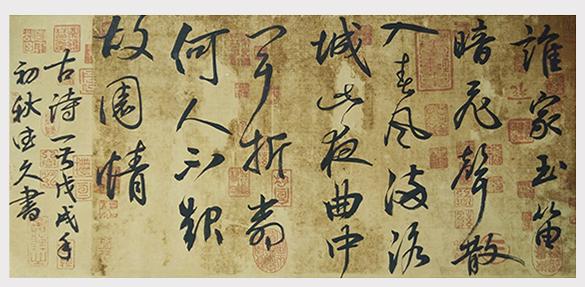 誰家玉笛
暗飛聲散
入春風滿洛
城此夜曲中
聞折柳
何人不
故園情
古詩一首戊戌年
初秋 久書